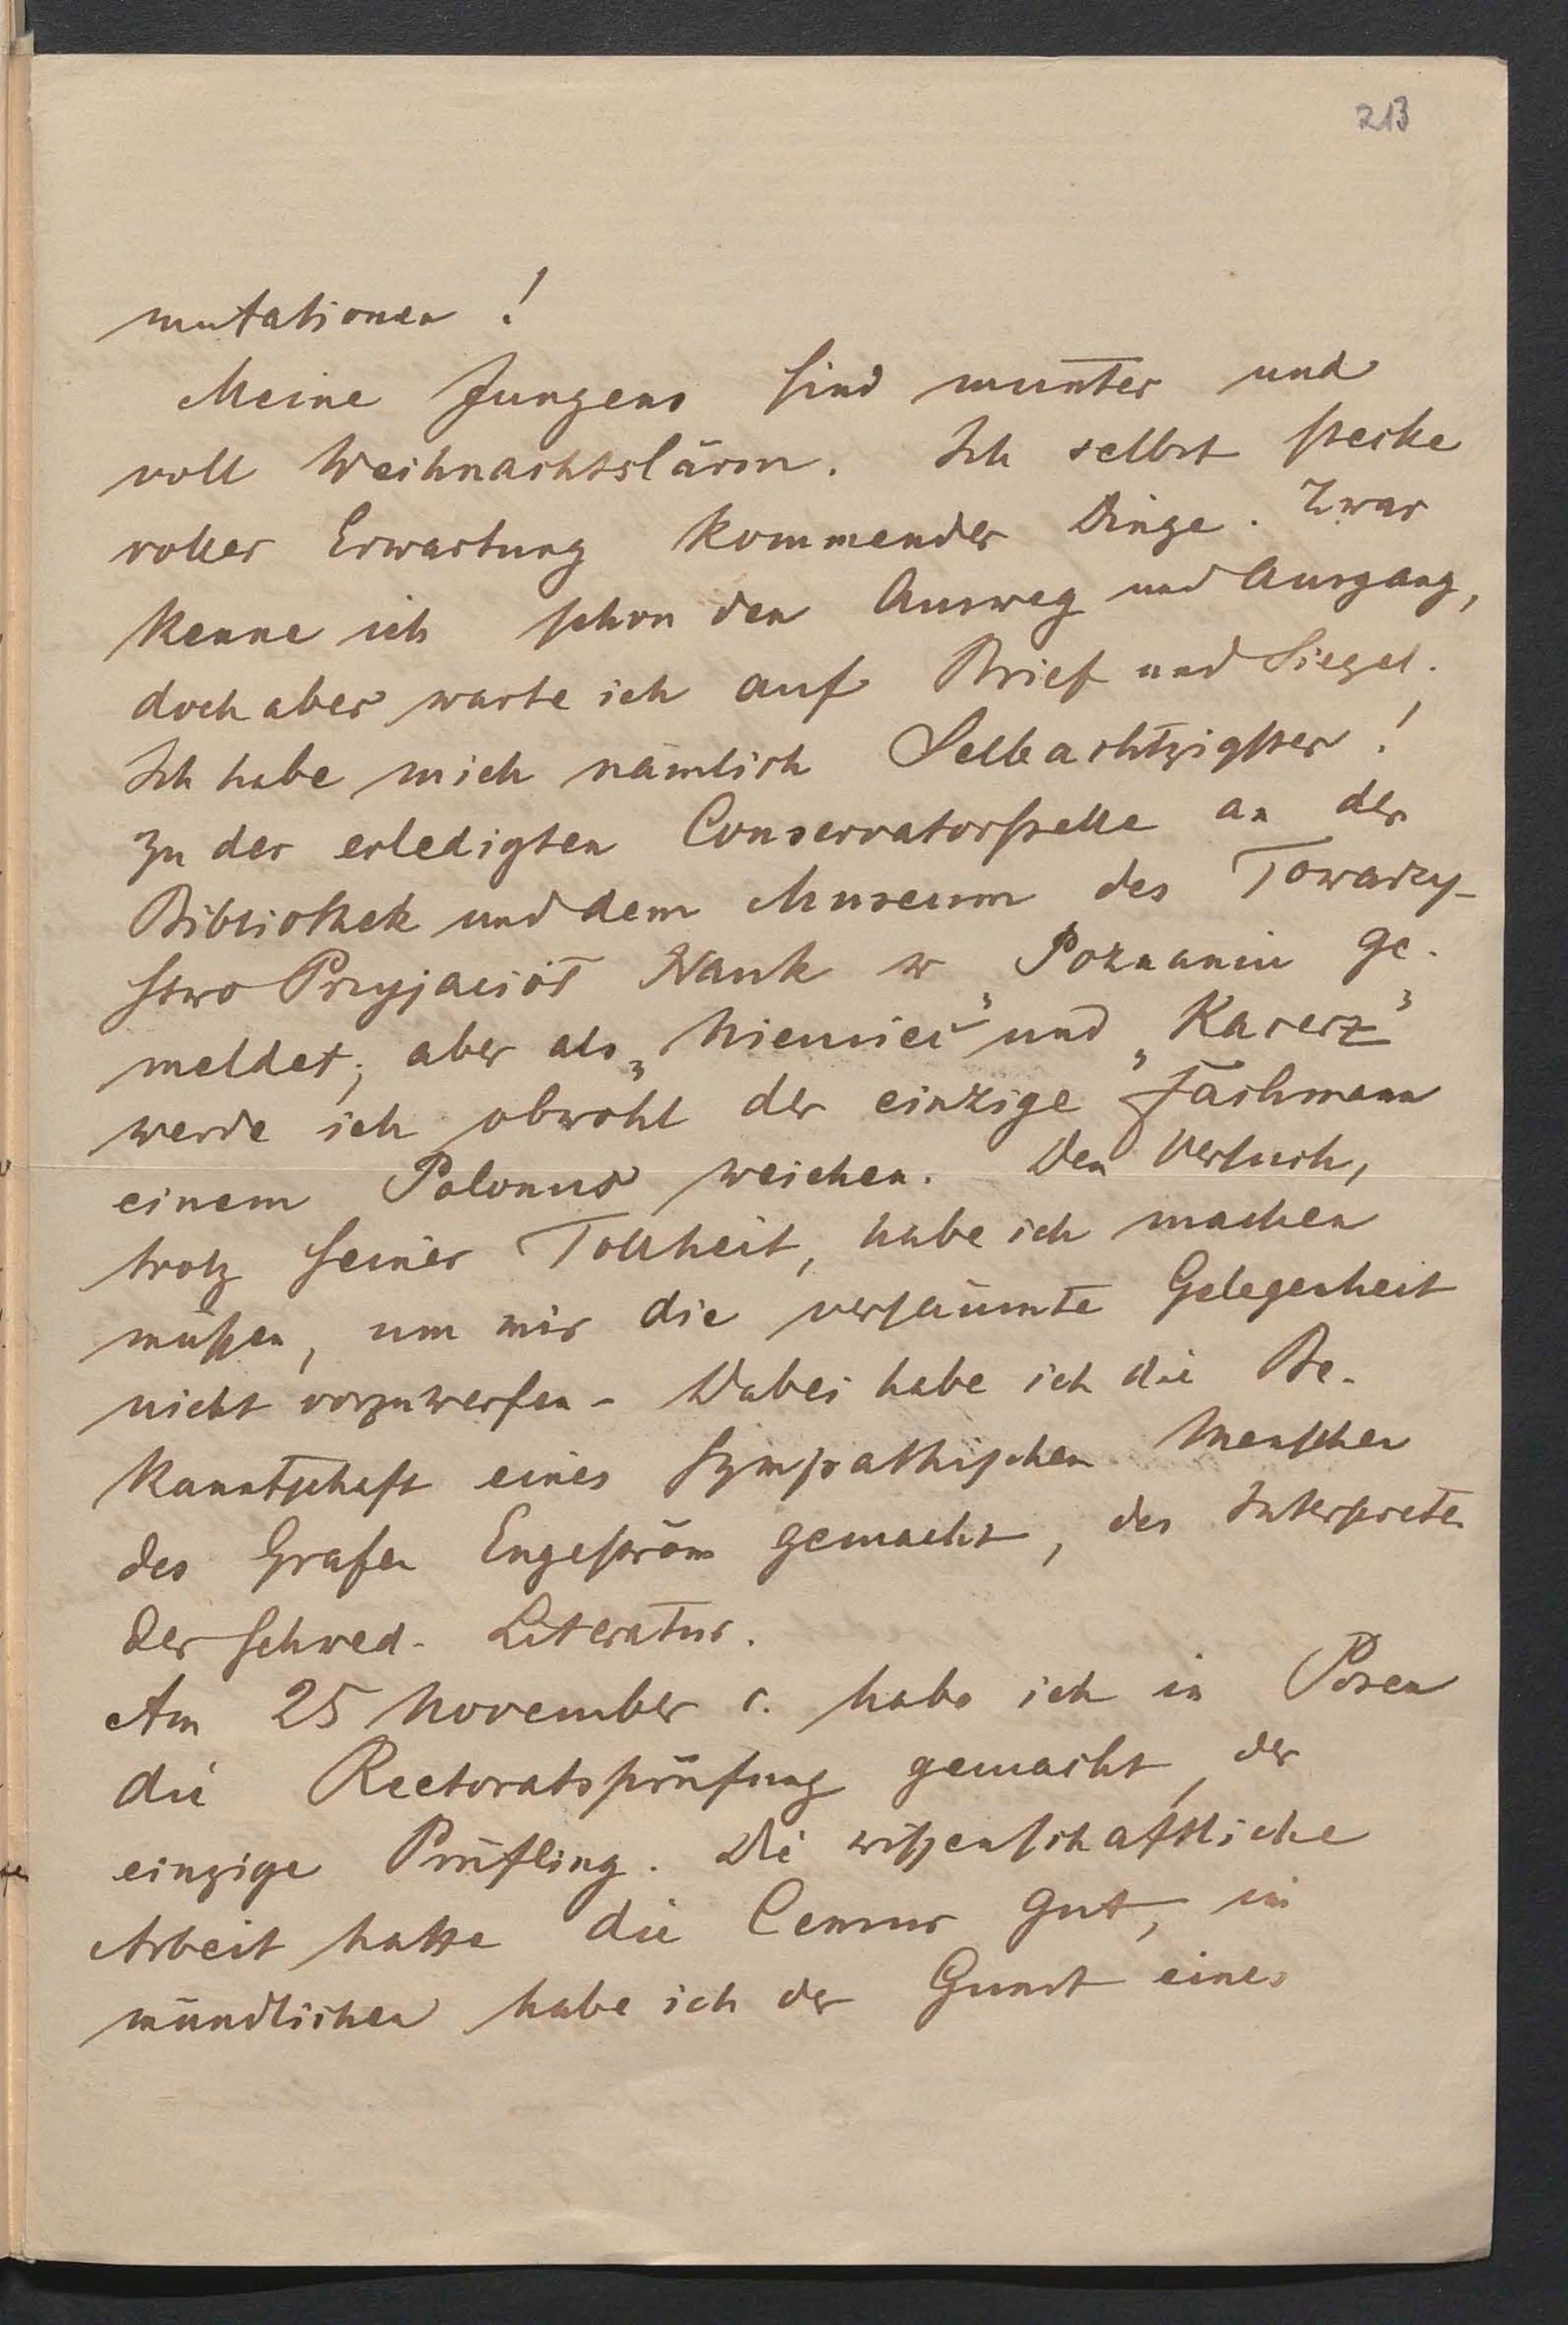 213
mutationen!
Meine Jungens sind munter und
voll Weihnachtslärm. Ich selbst stecke
voller Erwartung kommender Dinge. Zwar
kenne ich schon den Ausweg und Ausgang,
doch aber warte ich auf Brief und Siegel.
Ich habe mich nämlich Selbachtzigster!
zu der erledigten Conservatorstelle an der
Bibliothek und dem Museum des Towarzy-
stwo Przyjaciół Nauk w Poznaniu ge-
meldet; aber als „Niemiec“ und „Kacerz“
werde ich obwohl der einzige Fachmann
einem Polonus weichen. Den Versuch,
trotz seiner Tollheit, habe ich machen
müssen, um mir die versäumte Gelegenheit
nicht vorzuwerfen - Dabei habe ich die Be-
kanntschaft eines sympathischen Menschen
des Grafen Engeström gemacht, des Interpreten
der schwed. Literatur.
Am 25 November c. habe ich in Posen
die Rectoratsprüfung gemacht, der
einzige Prüfling. Die wissenschaftliche
Arbeit hatte die Censur gut, im
mündlichen habe ich der Gunst eines